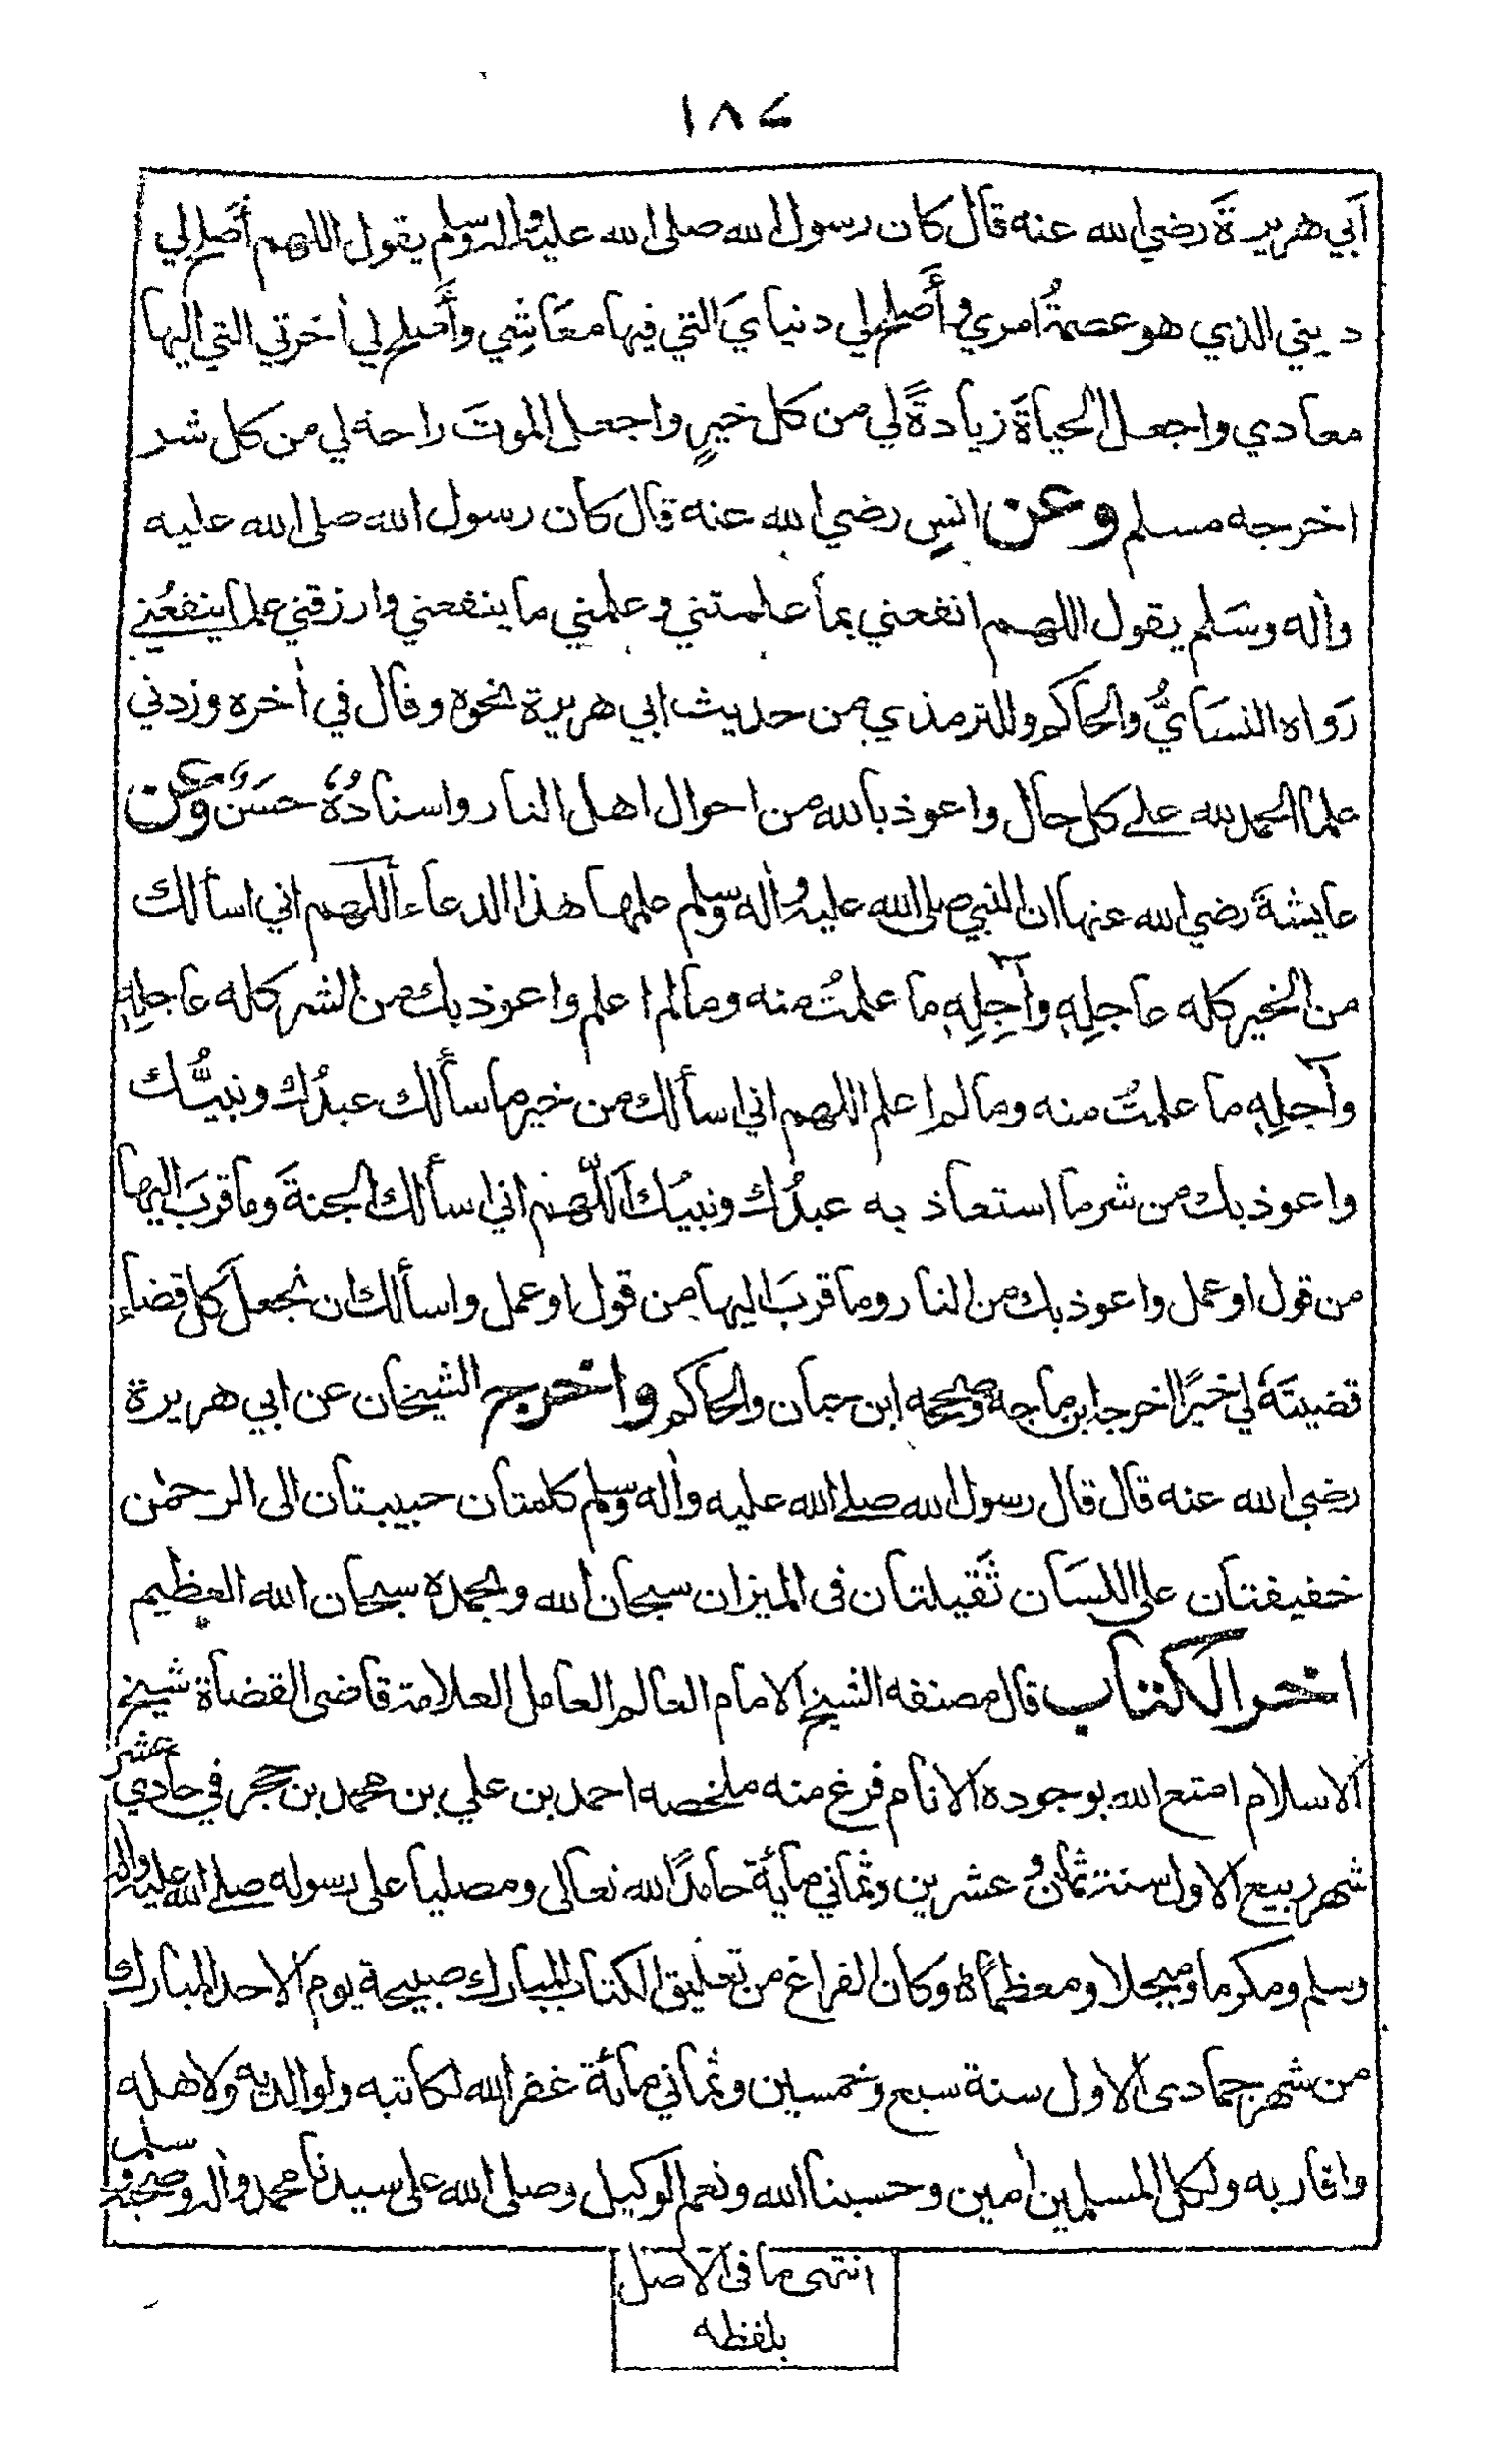 ١٨٤
أبي هريرة رضي الله عنه قال كان رسول الله صلى الله عليه واله وسلم يقول اللهم أصلح لي
ديني الذي هو عصمةُ امري وأصلح لي دنيايَ التي فيها معَاشِي وأَصلح لي أخرتي التي اليها
معادي واجعل الحياةَ زيادةً لي من كل خيرٍ واجعل الموتَ راحه لي من كل شر
اخرجه مسلم وعن انسٍ رضي الله عنه قال كان رسول الله صلى الله عليه
وأله وسَلم يقول اللهم انفعني بما علمتني وعلمني ما ينفعني وارزقني علما ينفعُني
رَواه النسَايُّ والحاكم وللترمذي من حديث ابي هريرة نحوه وقال في أخره وزدني
علما الحمد لله على كل حال واعوذ بالله من احوال اهل النار واسنادُهُ حسَنٌ وَعن
عايشةَ رضي الله عنها ان النبي صلى الله عليه وأله وسلم علمها هذا الدعاء اللهم اني اسألك
من الخير كله عاجلِهِ وآجِلِهِ ما علمتُ منه وما لم اعلم واعوذ بك من الشر كله عاجلِهِ
وآجلِهِ ما علمتُ منه وما لم اعلم اللهم اني اسألك من خير ما سألك عبدُك ونبيُّك
واعوذ بك من شر ما استعاذ به عبدُك ونبيُك اللّهم اني اسألك الجنةَ وما قربَ اليها
من قول او عمل واعوذ بك من النار وما قربَ اليها من قول او عمل واسألك ان تجعل كل قضاءٍ
قضيتَهُ لي خيرًا اخرجه ابن ماجه وصححه ابن حبان والحاكم واخرج الشيخان عن ابي هريرة
رضي الله عنه قال قال رسول الله صلى الله عليه وأله وسلم كلمتان حبيبتان الى الرحمٰن
خفيفتان على اللسَان ثَقيلتان فى الميزان سبحان الله وبحمده سبحان الله العظيم
اخر الكتاب قال مصنفه الشيخ الامام العالم العامل العلامة قاضى القضاة شيخ
الاسلام امتع الله بوجوده الانام فرغ منه ملخصه احمد بن علي بن محمد بن حجر في حادي عشر
شهر ربيع الاول سنة ثمان وعشرين وثماني مائة حامدًا لله تعالى ومصليا على رسوله صلى الله عليه واله
وسلم ومكرما ومبجلا ومعظمًا ه وكان الفراغ من تعليق الكتاب المبارك صبيحة يوم الاحد المبارك
من شهر جمادى الاول سنة سبع وخمسين وثماني مائة غفر الله لكاتبه ولوالديه ولاهله
واقاربه ولكل المسلمين أمين وحسبنا الله ونعم الوكيل وصلى الله على سيدنا محمد وأله وصحبه وسلم
انتهى ما فى الاصل
بلفظه